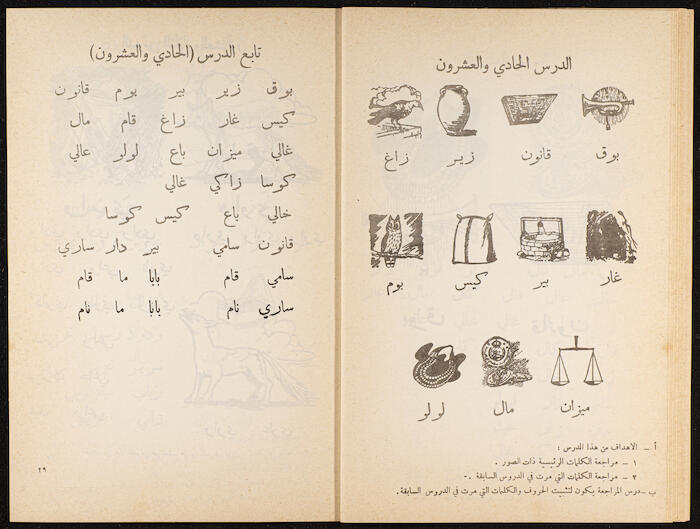 الدرس الحادي والعشرون
بوق قانون زير زاغ
غار بير كيس بوم
ميزان مال لولو
أ ـ الاهداف من هذا الدرس :
١ ـ مراجعة الكلمات الرئيسية ذات الصور .
٢ ـ مراجعة الكلمات التي مرت في الدروس السابقة .ـ
ب ـ درس المراجعة يكون لتثبيت الحروف والكلمات التي مرت في الدروس السابقة .
تابع الدرس (الحادي والعشرون)
بوق زير بير بوم قانون
كيس غار زاغ قام مال
غالي ميزان باع لولو عالي
كوسا زاكي غالي
خالي باع كيس كوسا
قانون سامي بير دار ساري
سامي قام بابا ما قام
ساري نام بابا ما نام
٢٩